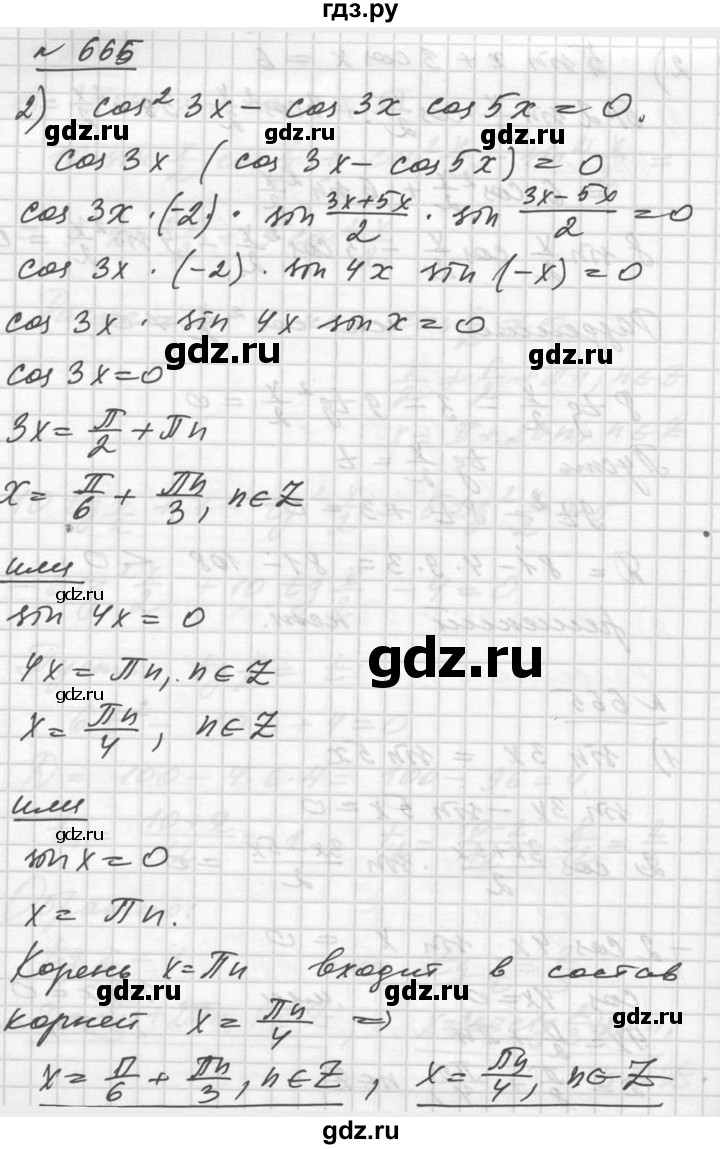 гдз.ру
№ 665
2) cos² 3x − cos 3x cos 5x = 0.
gdz.ru gdz.ru gdz.ru
cos 3x (cos 3x − cos 5x) = 0
cos 3x · (−2) · sin (3x+5x)/2 · sin (3x−5x)/2 = 0
cos 3x · (−2) · sin 4x sin (−x) = 0
cos 3x · sin 4x sin x = 0
gdz.ru gdz.ru
cos 3x = 0
3x = π/2 + πn
x = π/6 + πn/3, n ∈ Z
или
gdz.ru
sin 4x = 0
gdz.ru
4x = πn, n ∈ Z
gdz.ru
x = πn/4, n ∈ Z
или
gdz.ru
sin x = 0
x = πn.
Корень x = πn входит в состав
gdz.ru gdz.ru
корней x = πn/4 ⇒
gdz.ru
x = π/6 + πn/3, n ∈ Z, x = πn/4, n ∈ Z
gdz.ru